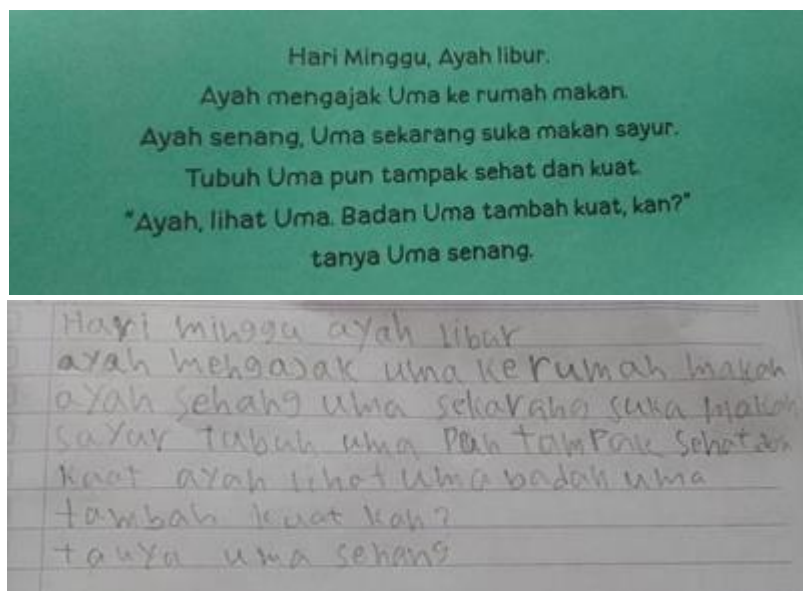 Hari Minggu, Ayah libur.
Ayah mengajak Uma ke rumah makan.
Ayah senang, Uma sekarang suka makan sayur.
Tubuh Uma pun tampak sehat dan kuat.
"Ayah, lihat Uma. Badan Uma tambah kuat, kan?"
tanya Uma senang.
Hari minggu ayah libur
ayah mengajak uma kerumah makan
ayah senang uma sekarang suka makan
sayur tubuh uma pun tampak sehat dan
kuat ayah lihat uma badan uma
tambah kuat kan?
tanya uma senang